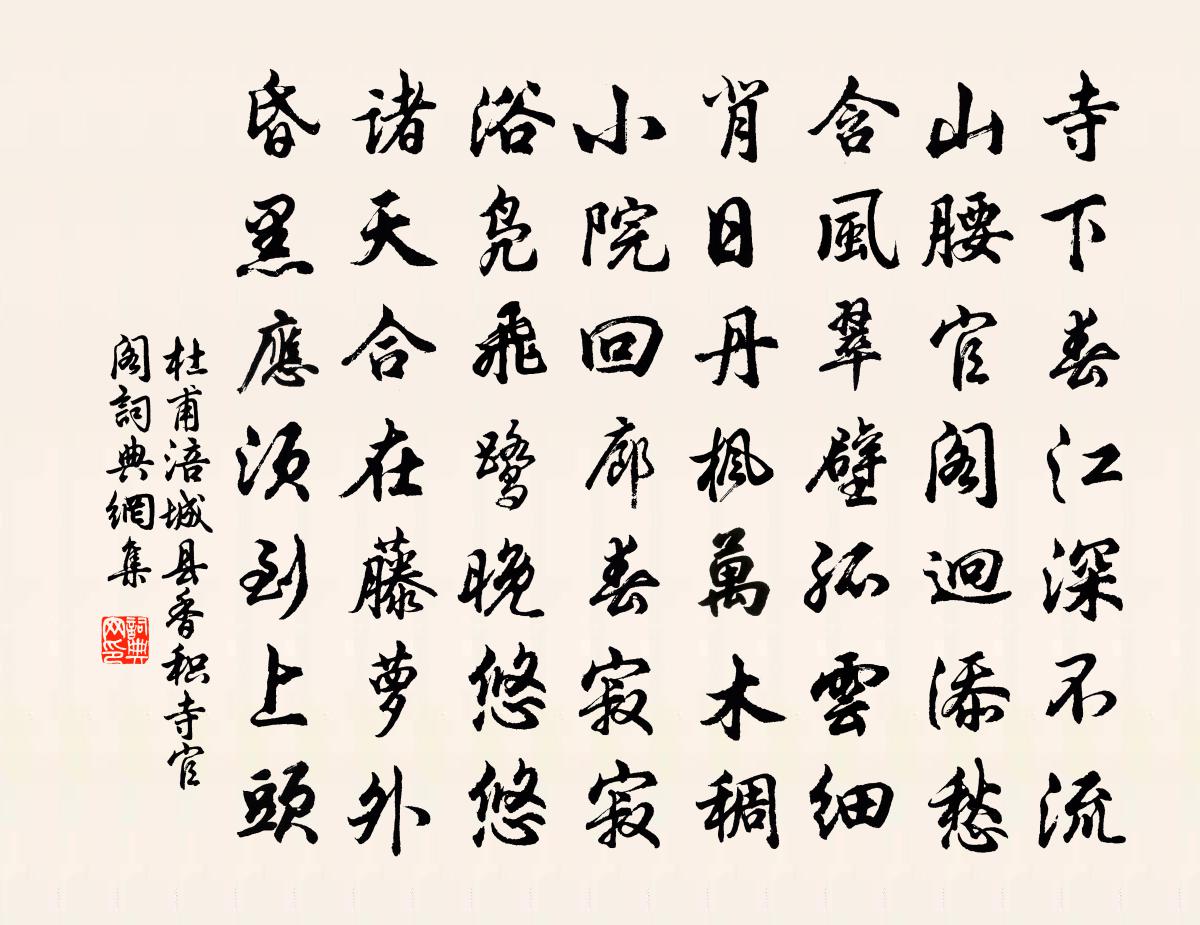 寺下春江深不流
山腰官阁迥添愁
含風翠壁孤雲细
背日丹楓萬木稠
小院回廊春寂寂
浴凫飛鹭晚悠悠
诸天合在藤萝外
昏黑應须到上頭
杜甫涪城县香积寺官
阁詞典網集
詞典网印